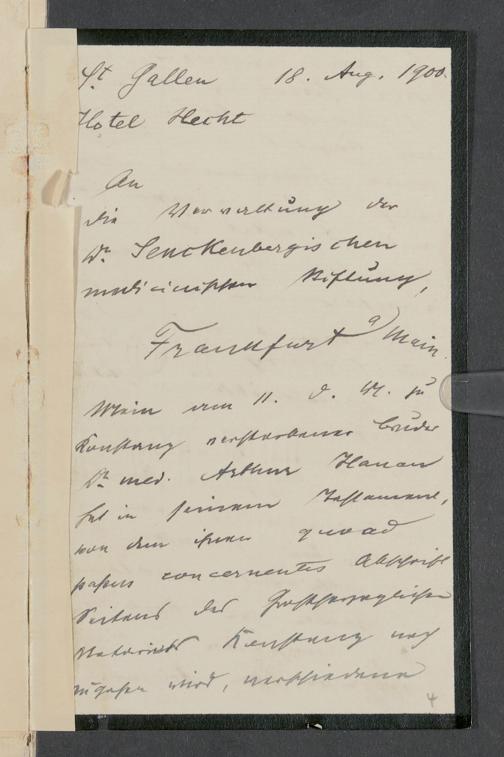 St. Gallen 18. Aug. 1900.
Hotel Hecht
An
die Verwaltung der
Dr. Senckenbergischen
medicinischen Stiftung,
Frankfurt a/ Main.
Mein am 11. d. M. zu
Konstanz verstorbener Bruder
Dr. med. Arthur Hanau
hat in seinem Testament,
von dem Ihnen quoad
passus concernentes Abschrift
Seitens des Großherzoglichen
Notariats Konstanz noch
zugehen wird, verschiedene
4